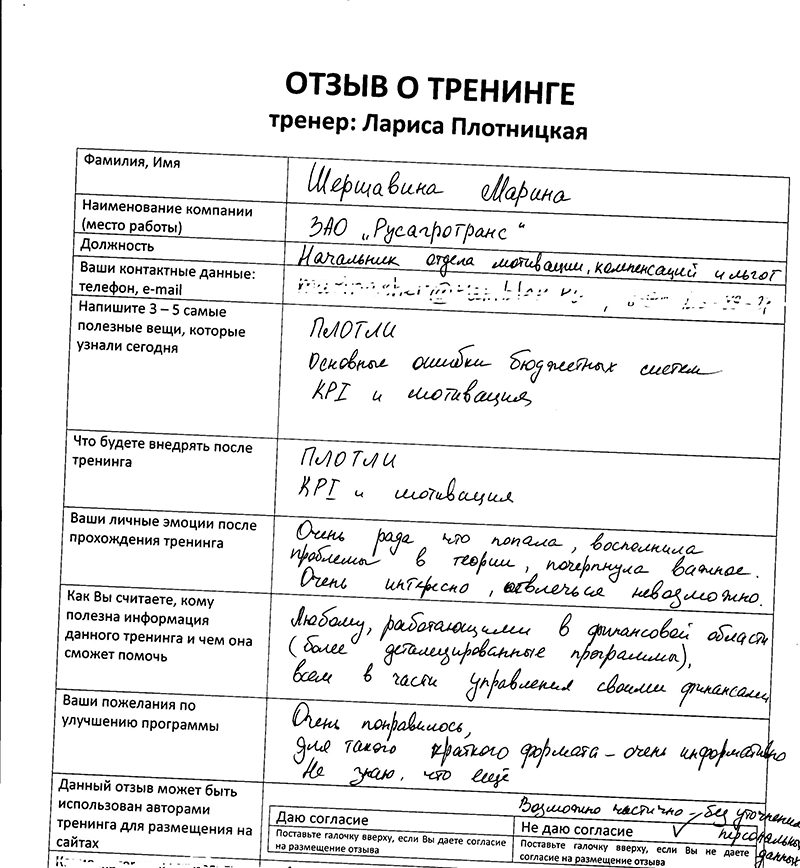 ОТЗЫВ О ТРЕНИНГЕ
тренер: Лариса Плотницкая
Фамилия, Имя
Шершавина Марина
Наименование компании
(место работы)
ЗАО „Русагротранс“
Должность
Начальник отдела мотивации, компенсаций и льгот
Ваши контактные данные:
телефон, e-mail
Напишите 3 – 5 самые
полезные вещи, которые
узнали сегодня
ПЛОТЛИ
Основные ошибки бюджетных систем
KPI и мотивация
Что будете внедрять после
тренинга
ПЛОТЛИ
KPI и мотивация
Ваши личные эмоции после
прохождения тренинга
Очень рада что попала, восполнила
проблемы в теории, почерпнула важное.
Очень интересно, отвлечься невозможно.
Как Вы считаете, кому
полезна информация
данного тренинга и чем она
сможет помочь
Любому, работающими в финансовой области
(более детализированные программы),
всем в части управления своими финансами
Ваши пожелания по
улучшению программы
Очень понравилось,
для такого краткого формата – очень информативно
Не знаю, что ещё
Данный отзыв может быть
использован авторами
тренинга для размещения на
сайтах
Возможно частично – без уточнения
персональных
данных
Даю согласие
Не даю согласие ✓
Поставьте галочку вверху, если Вы даете согласие
на размещение отзыва
Поставьте галочку вверху, если Вы не даете
согласие на размещение отзыва